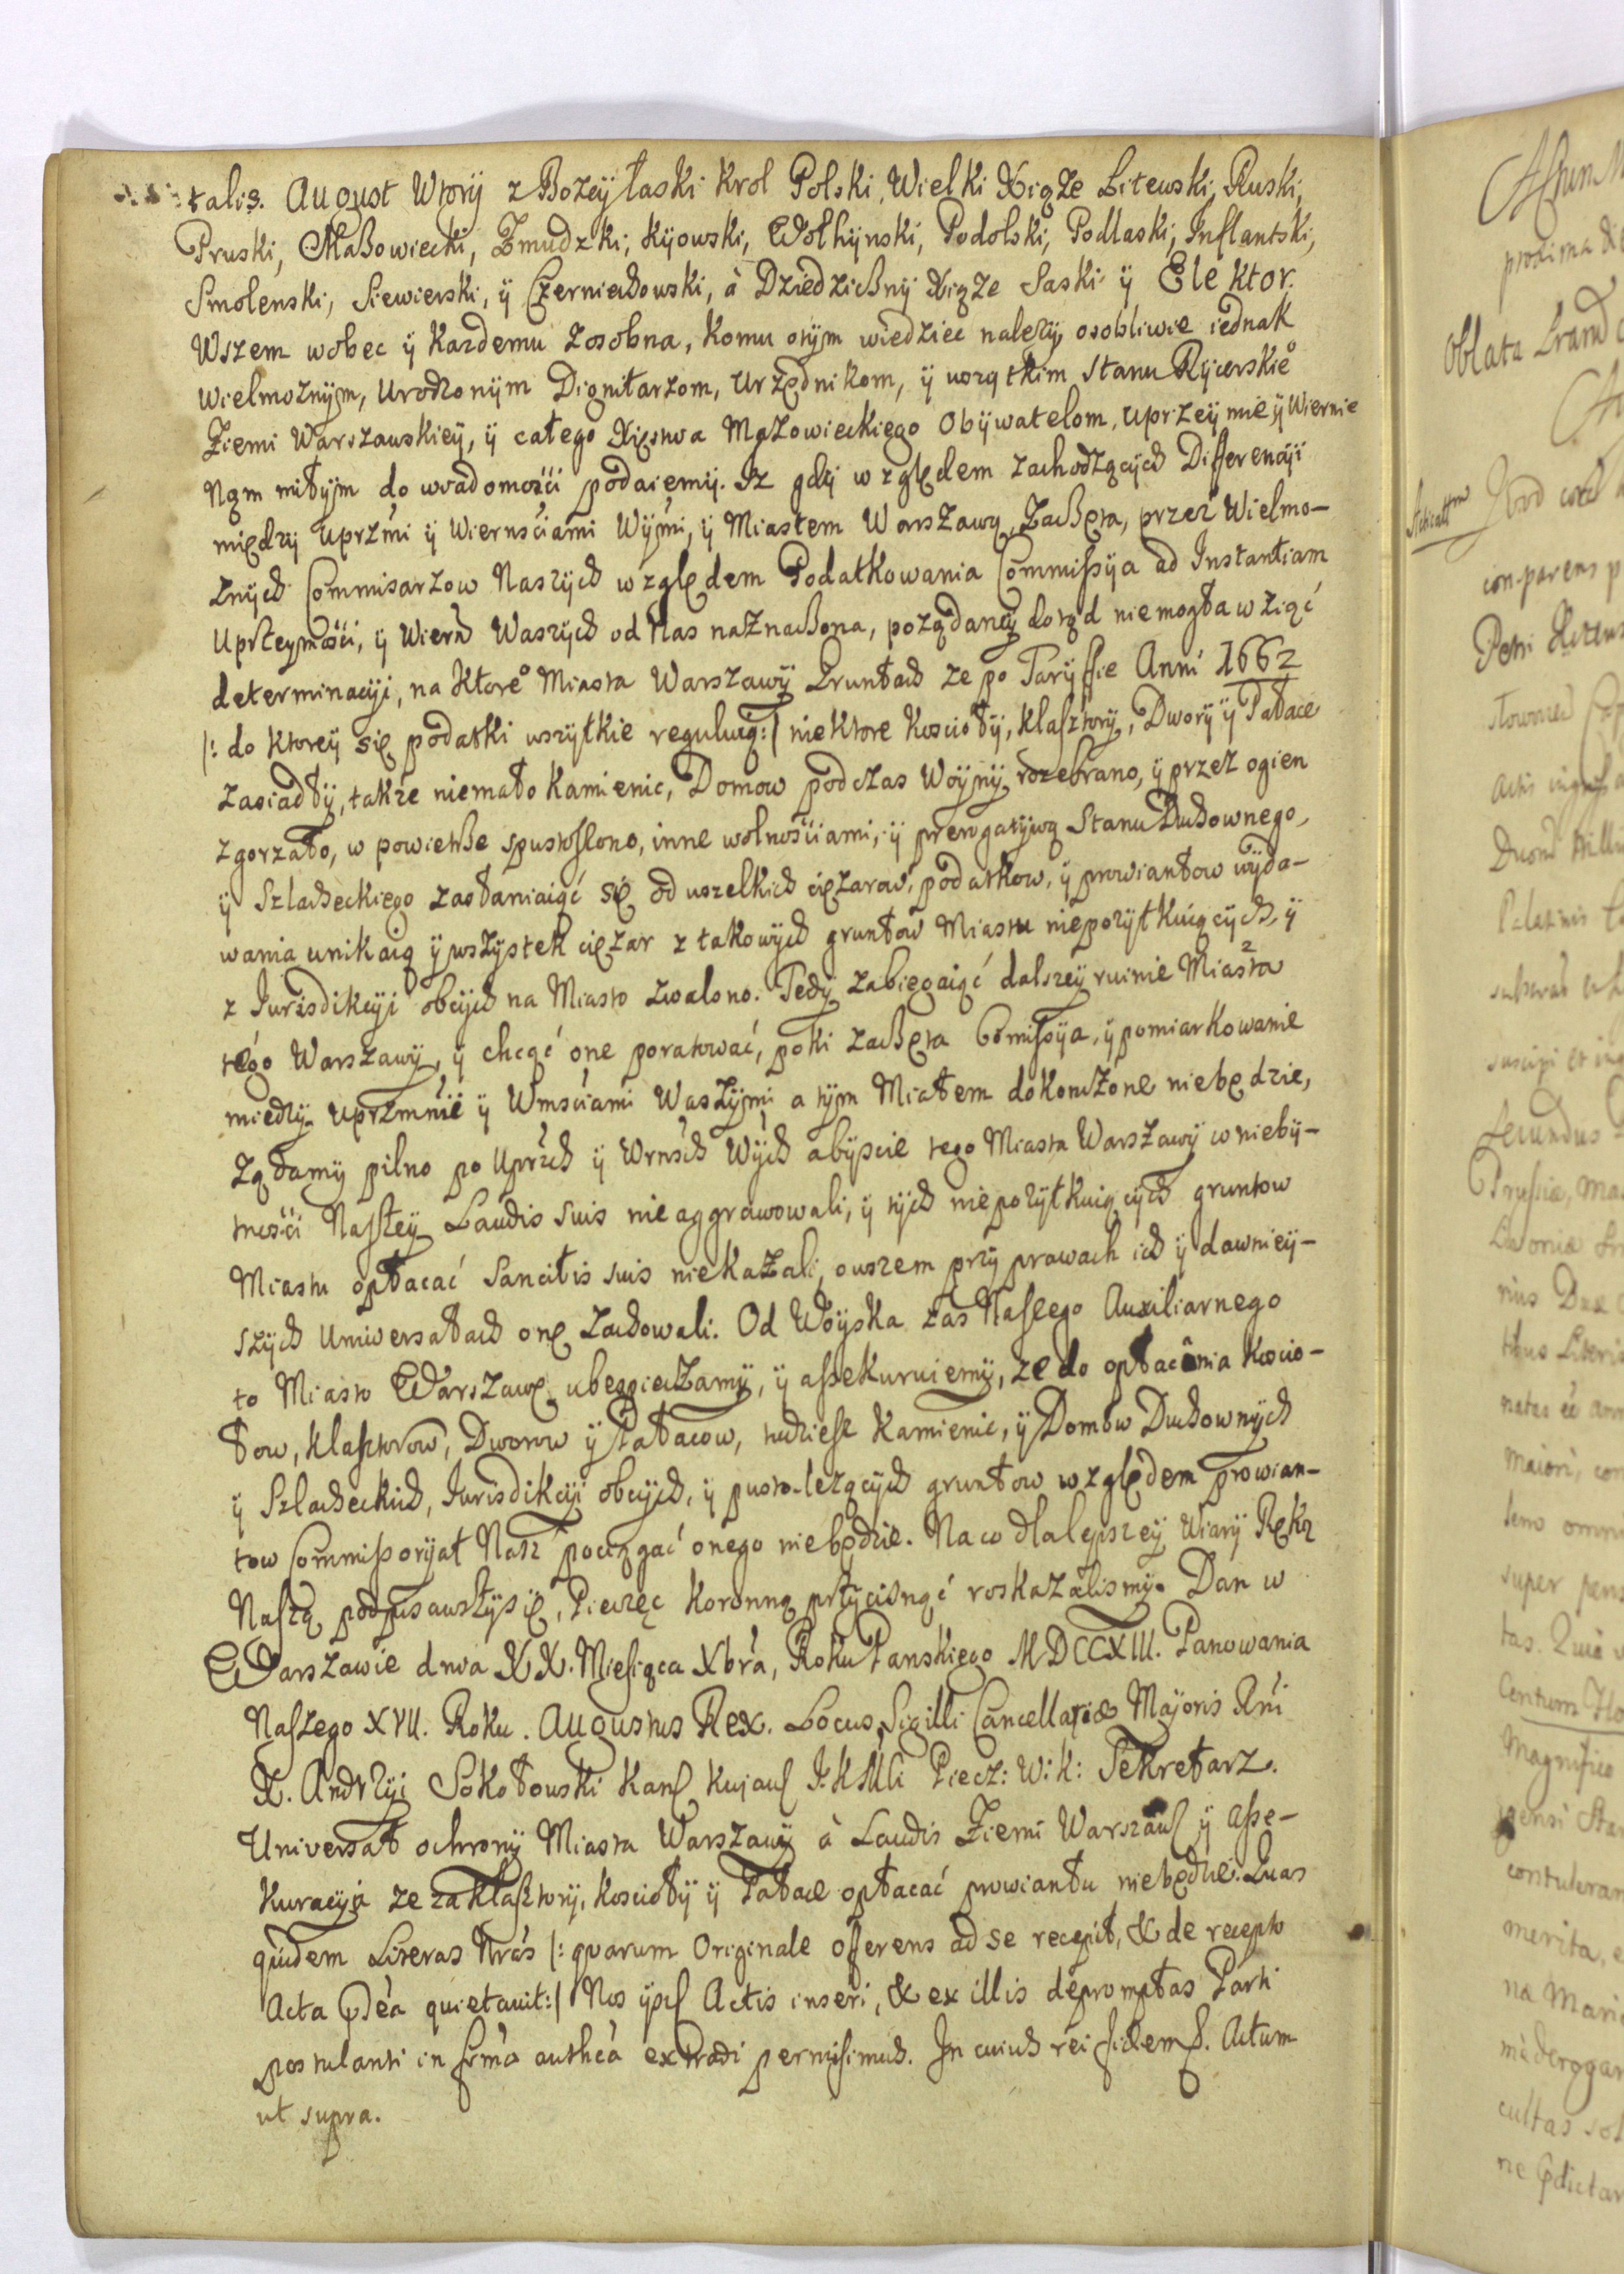 talis. August Wtorÿ z Bozeÿ łaski Krol Polski, Wielki Xiąze Litewski, Ruski,
Pruski, Maßowiecki, Zmudzki, Kÿowski, Wołhÿnski, Podolski, Podlaski, Inflantski,
Smolenski, Siewierski, ÿ Czerniechowski, à Dziedzicznÿ Xiąze Saski ÿ Elektor.
Wszem wobec ÿ Kazdemu zosobna, Komu otÿm wiedziec nalezÿ, osobliwie iednak
Wielmoznÿm, Urodzonÿm Dignitarzom, Urzędnikom, ÿ wszÿtkim Stanu Rÿcerskie͠o
Ziemi Warszawskieÿ, ÿ całego Xięstwa Mazowieckiego Obÿwatelom, uprzeÿmie ÿ Wiernie
Nąm miłÿm do wiadomości podaiemÿ. Iz gdÿ względem zachodzącÿch Differencÿi
międzÿ Uprzmi ÿ Wiernsciami Wÿmi, ÿ Miastem Warszawą, Zaczęta, przez Wielmo-
znÿch Commisarzow Naszÿch względem Podatkowania Commissÿa ad Instantiam
Uprzeymości, ÿ Wiern Waszÿch od Nas naznaczona, poządaneÿ dotąd niemogła wziąć
determinacÿi, na Ktore͠o Miasta Warszawÿ Gruntach ze po Tarÿffie Anni 1662
/: do Ktoreÿ się podatki wszÿtkie reguluią:/ nieKtore Kosciołÿ, Klasztorÿ, Dworÿ ÿ Pałace
zasiadłÿ, takze niemało Kamienic, Domow podczas Woÿnÿ rozebrano, ÿ przez ogien
zgorzało, w powietrze spustoszono, inne wolnościami, ÿ prerogatÿwą Stanu Duchownego,
ÿ Szlacheckiego zasłaniaiąć się od wszelkich cięzarow, podatkow, ÿ prowiantow wÿda-
wania unikaią ÿ wszÿstek cięzar z takowÿch gruntow Miastu niepozÿtkuiącÿch, ÿ
z Jurisdikcÿi obcÿch na Miasto zwalono. Tedÿ zabiegaiąć dalszeÿ ruinie Miasta
tego Warszawÿ, ÿ chcąć one poratować, poki zaczęta Comissÿa, ÿ pomiarkowanie
miedzÿ Uprzmnie ÿ Wmściami Waszÿmi a tÿm Miałem dokonczone niebędzie,
Ządamÿ pilno po Uprzch ÿ Wrnsch Wÿch abÿscie tego Miasta Warszawÿ w niebÿ-
tności Naszeÿ Laudis suis nie aggrawowali, ÿ tÿch niepozÿtkuiącÿch gruntow
Miastu opłacać Sancitis suis niekazali, owszem przÿ prawach ich ÿ dawnieÿ-
szÿch Uniwersałach onę zachowali. Od Woÿska zas Naszego Auxiliarnego
to Miasto Warszawę ubezpieczamÿ, ÿ assekuruiemÿ, ze do opłacania Koscio-
łow, Klasztorow, Dworow ÿ Pałacow, tudziesz Kamienic, ÿ Domow Duchownÿch
ÿ Szlacheckich, Jurisdikcÿi obcÿch, ÿ pusto-lezącÿch gruntow względem prowian-
tow Commissorÿat Nasz pociągać onego niebędzie. Na co dla lepszeÿ Wiarÿ Ręką
Naszą podpisawszÿsię, Pieczęc Koronną przÿcisnąć roskazalismÿ. Dan w
Warszawie dnia XX. Miesiąca Xbra, Roku Panskiego MDCCXIII. Panowania
Naszego XVII. Roku. Augustus Rex. Locus Sigilli Cancellariæ Majoris Rni
X. Andrzÿi Sokołowski Kan Kujaw J:KMci Piecz: W: K: Sekretarz.
Uniwersał ochronÿ Miasta Warszawÿ à Laudis Ziemi Warszaw ÿ asse-
kuracÿa ze za Klasztorÿ, Kosciołÿ ÿ Pałace opłacać prowiantu niebędzie. Quas
quidem Literas Nras /: quarum Originale offerens ad se recepit, & de recepto
Acta pdca quietavit:/ Nos ÿsd Actis inseri, & ex illis depromptas Parti
postulanti in forma authca extradi permisimus. In cuius rei fidem. Actum
ut supra.
Oblata